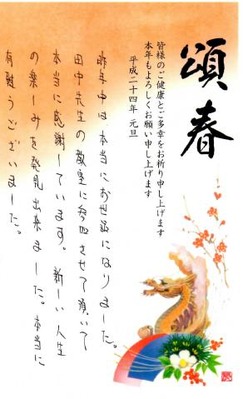 頌春
皆様のご健康とご多幸をお祈り申し上げます
本年もよろしくお願い申し上げます
平成二十四年 元旦
昨年中は本当にお世話になりました。
田中先生の教室に参加させて頂いて
本当に感謝しています。 新しい人生
の楽しみを発見出来ました。本当に
有難うございました。